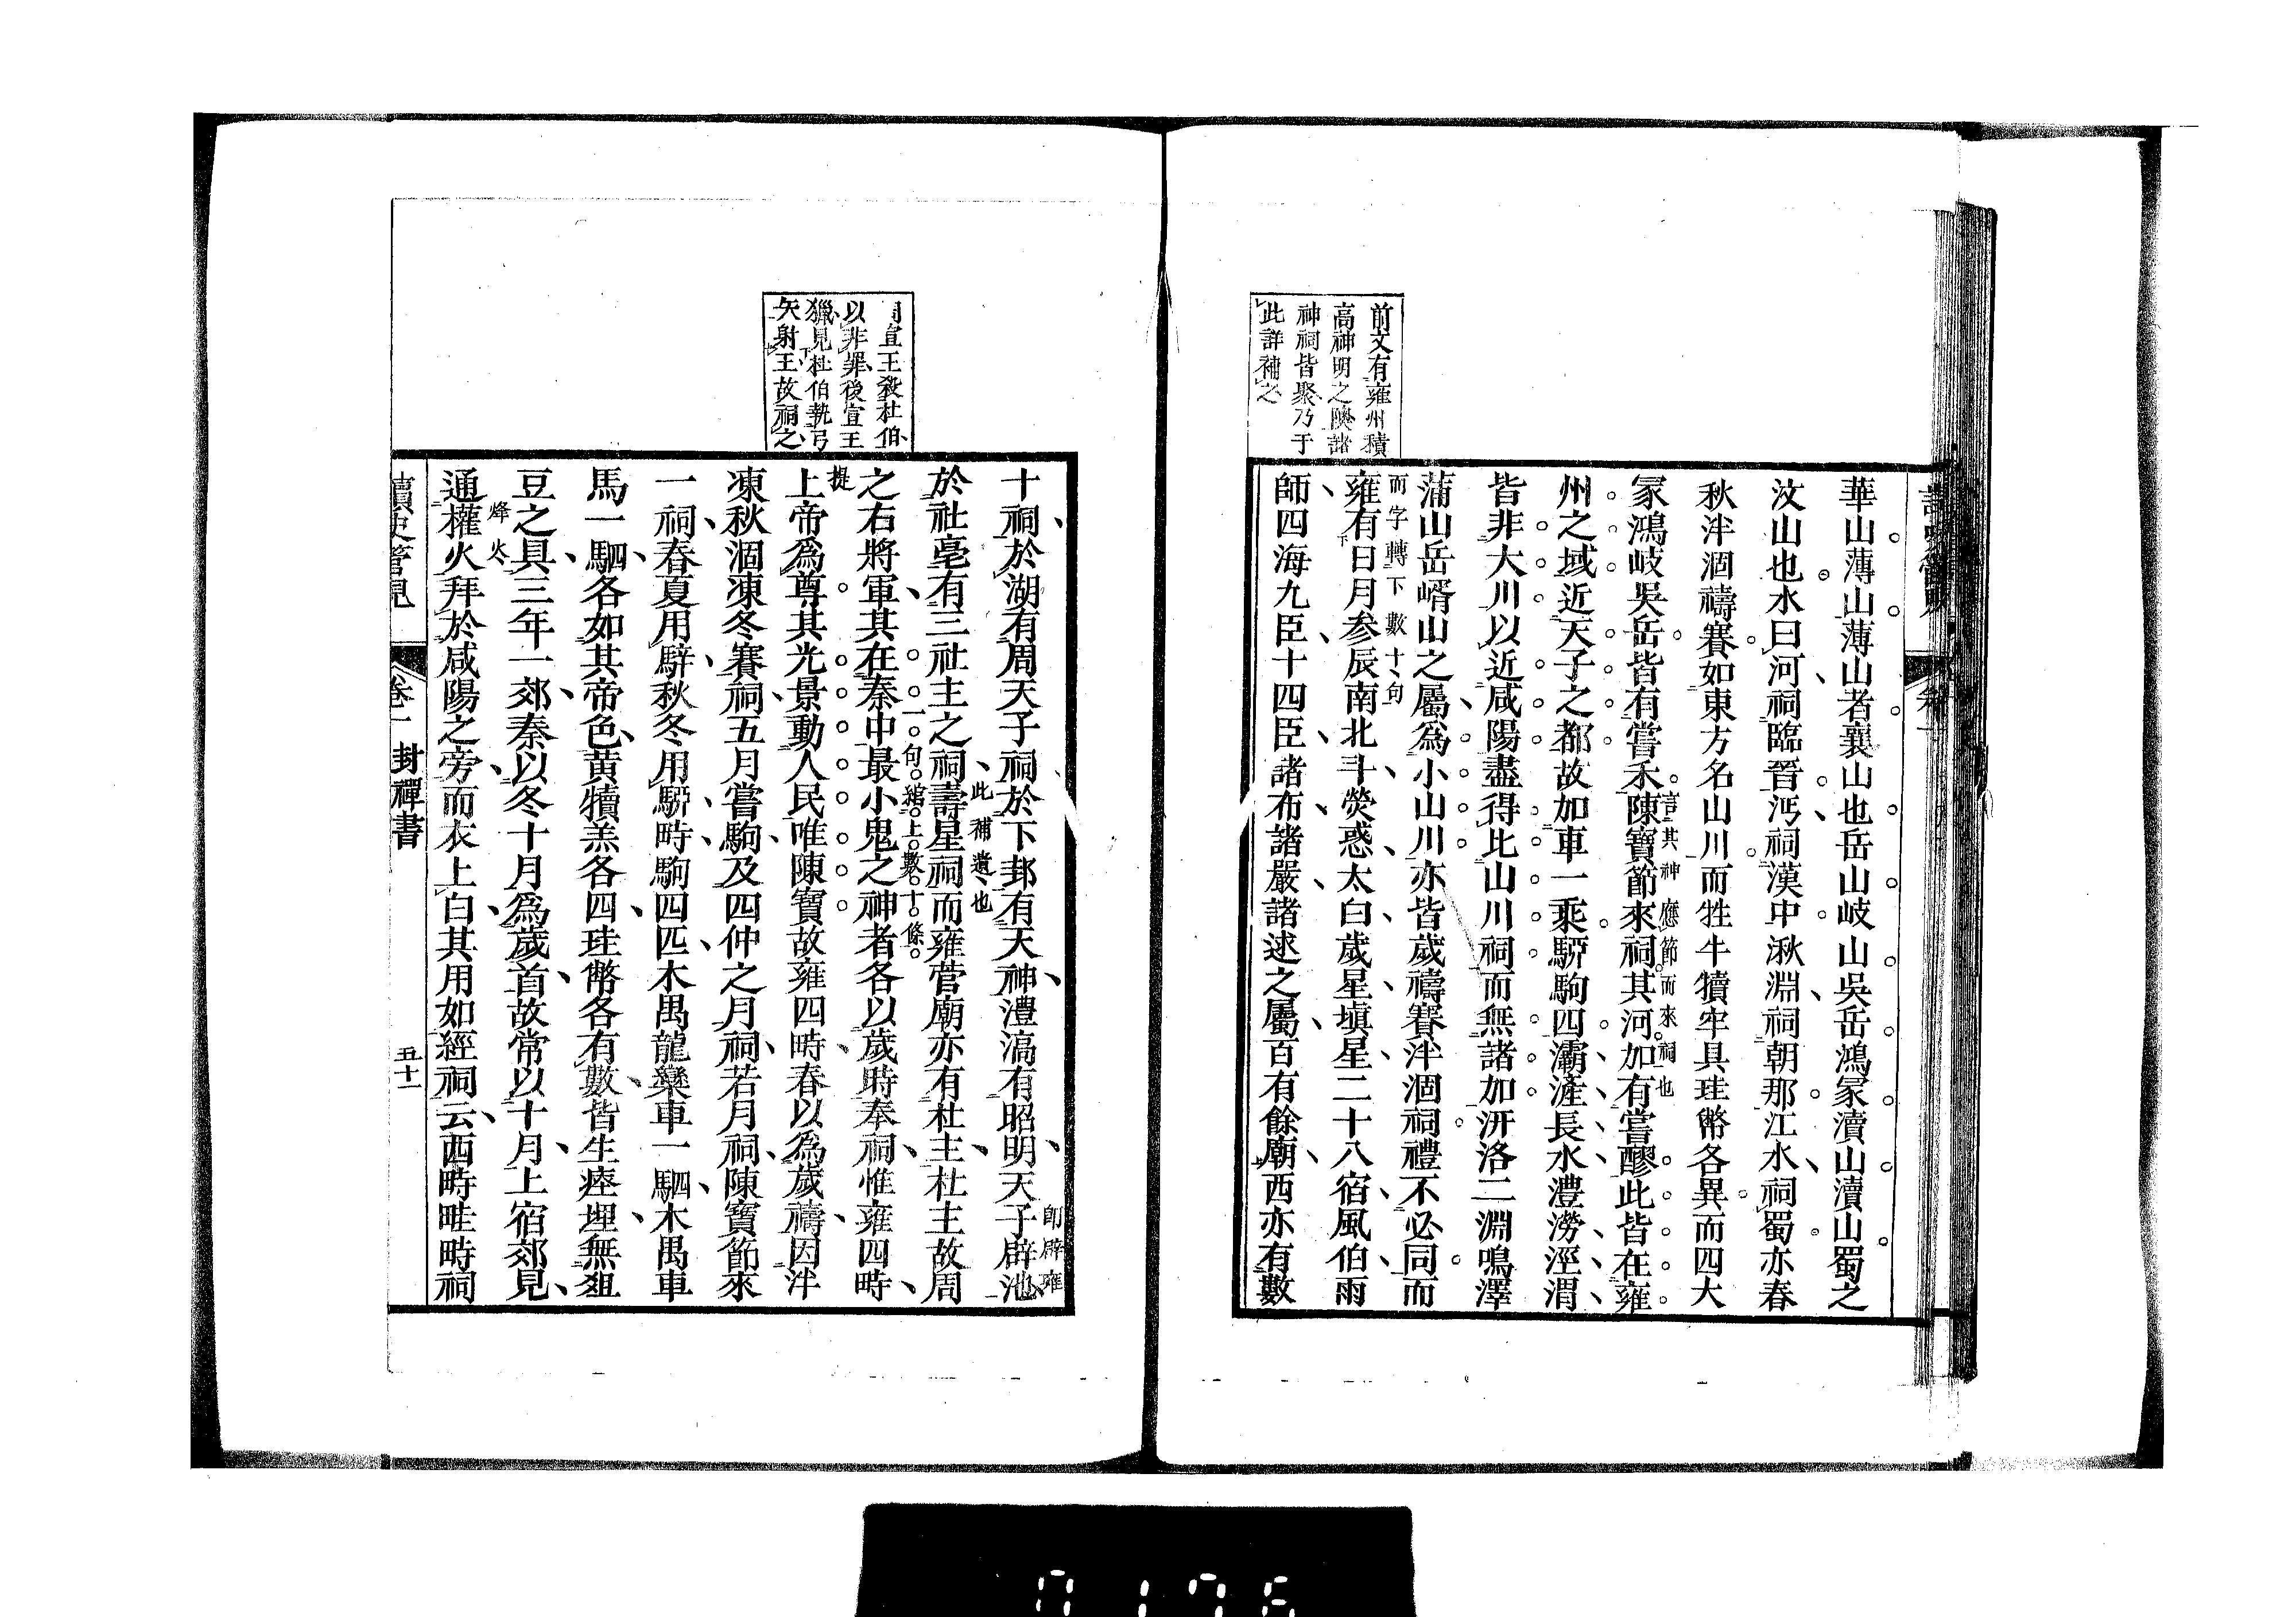 前文有雍州積
高神明之隩諸
神祠皆聚乃于
此詳補之
華山薄山薄山者襄山也岳山岐山吳岳鴻冢瀆山瀆山蜀之
汶山也水曰河祠臨晉沔祠漢中湫淵祠朝那江水祠蜀亦春
秋泮涸禱賽如東方名山川而牲牛犢牢具珪幣各異而四大
冢鴻岐吳岳皆有嘗禾陳寶節來祠其河加有嘗醪此皆在雍
言其神應節而來祠也
州之域近天子之都故加車一乘駵駒四灞滻長水灃澇涇渭
皆非大川以近咸陽盡得比山川祠而無諸加汧洛二淵鳴澤
蒲山岳㟓山之屬爲小山川亦皆歲禱賽泮涸祠禮不必同而
而字轉下數十句
雍有日月參辰南北斗熒惑太白歲星塡星二十八宿風伯雨
師四海九臣十四臣諸布諸嚴諸逑之屬百有餘廟西亦有數
宣王殺杜伯
以非罪後宣王
獵見杜伯執弓
矢射王故祠之
十祠於湖有周天子祠於下邽有天神灃滈有昭明天子辟池
卽辟雍
於社亳有三社主之祠壽星祠而雍菅廟亦有杜主杜主故周
此補遺也
之右將軍其在秦中最小鬼之神者各以歲時奉祠惟雍四畤
一句綰上數十條
提
上帝爲尊其光景動人民唯陳寶故雍四畤春以爲歲禱因泮
凍秋涸凍冬賽祠五月嘗駒及四仲之月祠若月祠陳寶節來
一祠春夏用騂秋冬用駵畤駒四匹木禺龍欒車一駟木禺車
馬一駟各如其帝色黃犢羔各四珪幣各有數皆生瘞埋無俎
豆之具三年一郊秦以冬十月爲歲首故常以十月上宿郊見
烽火
通權火拜於咸陽之旁而衣上白其用如經祠云西畤畦畤祠
讀史管見
卷一 封禪書
五十一